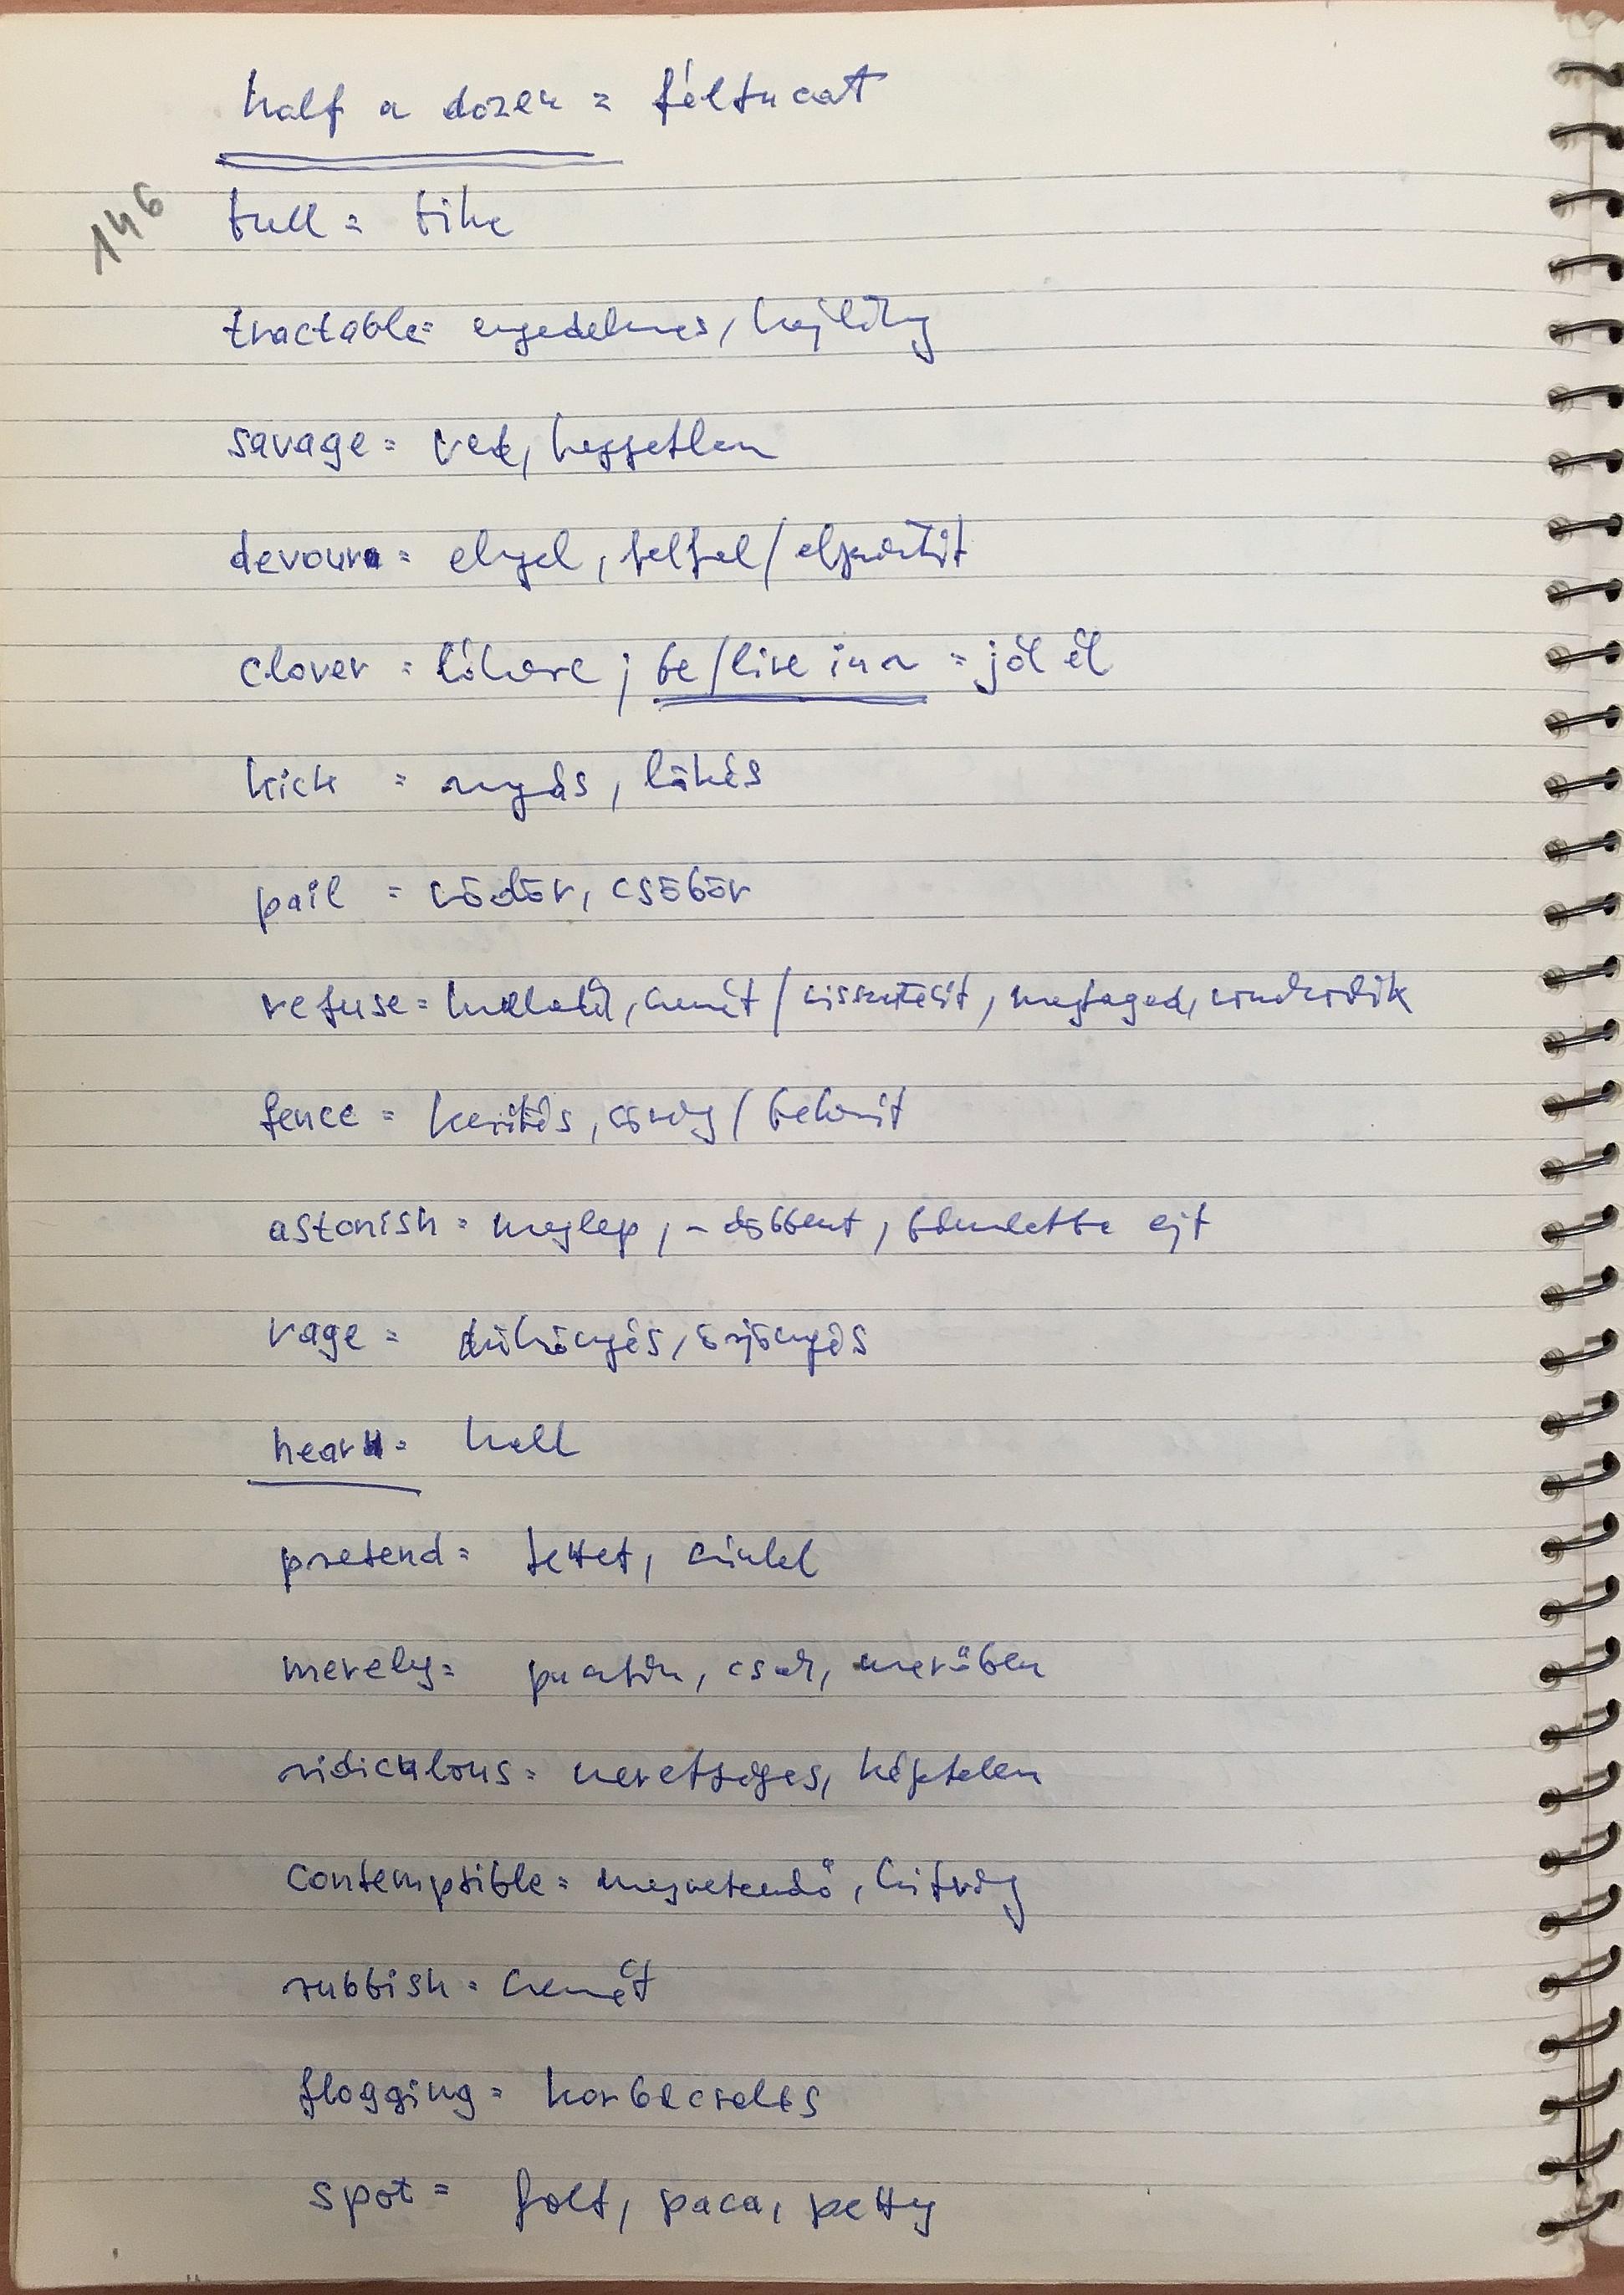 half a dozen = féltucat
146
bull = bika
tractable = engedelmes, hajlítág
savage = vad, heggetlen
devour = elnyel, felfal / elpusztít
clover = lóhere ; be/live in ~ = jól él
kick = rúgás, lökés
pail = vödör, csöbör
refuse = hulladék, szemét / visszautasít, megtagad, vonakodik
fence = kerítés, sövény / bekerít
astonish = meglep, ~ döbbent, bámulatba ejt
rage = dühöngés, őrjöngés
hear = hall
pretend = tettet, színlel
merely = pusztán, csak, merőben
ridiculous = nevetséges, képtelen
contemptible = megvetendő, hitvány
rubbish = szemét
flogging = korbácsolás
spot = folt, paca, petty